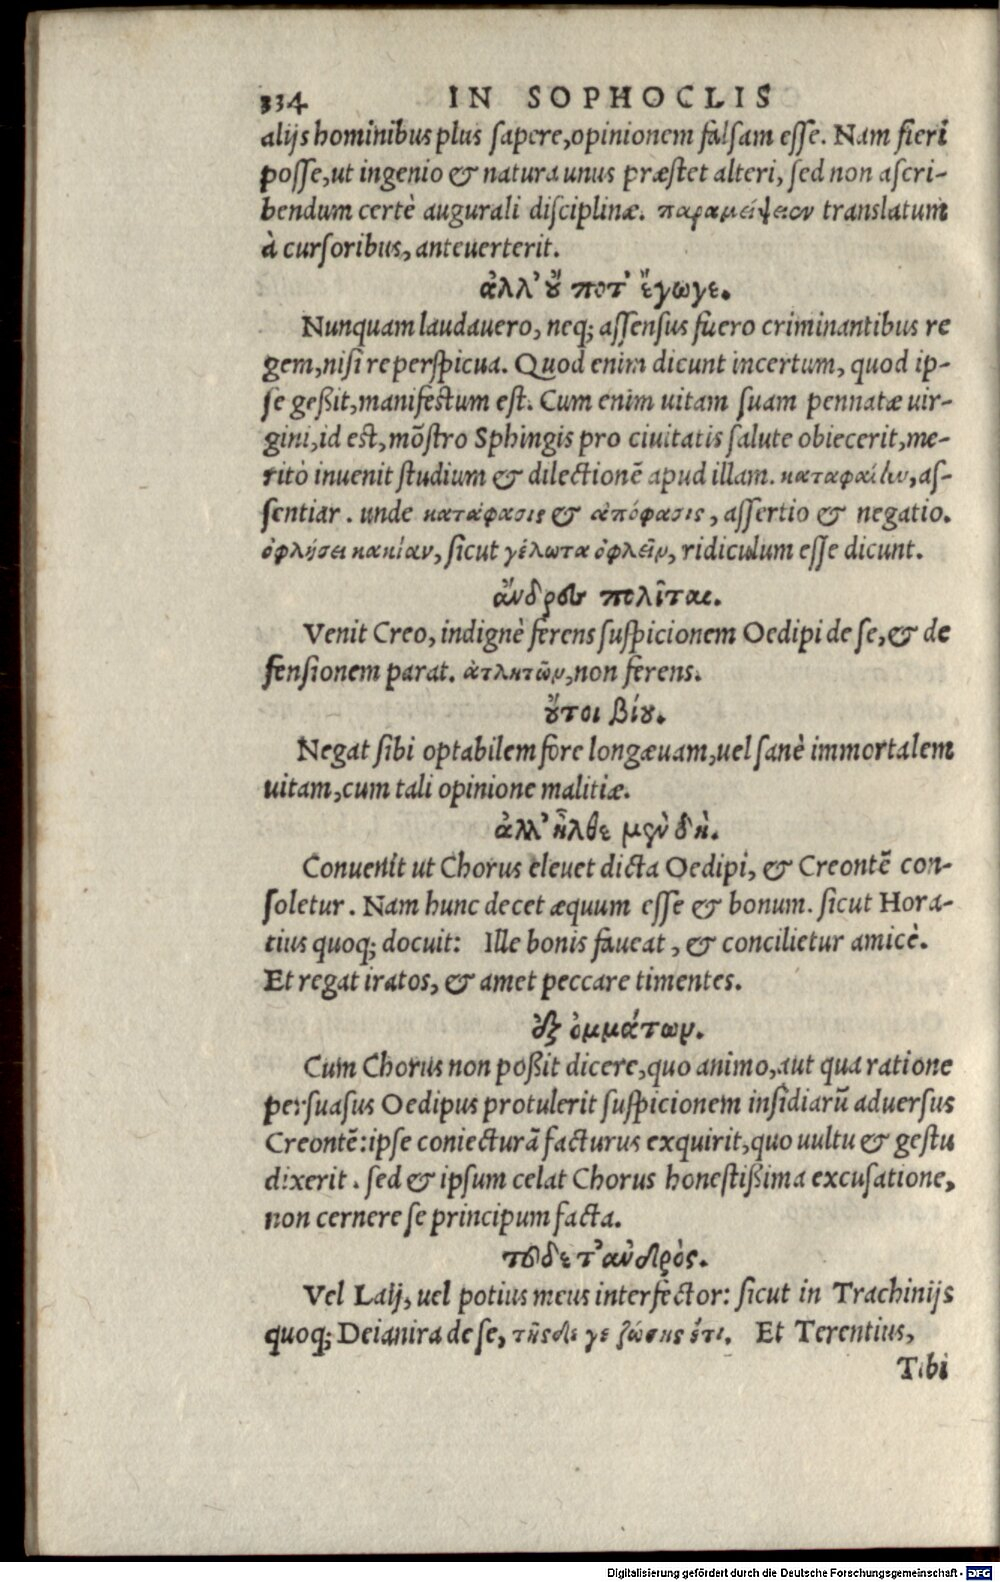 334 IN SOPHOCLIS
alijs hominibus plus sapere, opinionem falsam esse. Nam fieri
posse, ut ingenio & natura unus præstet alteri, sed non ascri-
bendum certè augurali disciplinæ. παραμείψειεν translatum
à cursoribus, anteuerterit.
ἀλλ' οὔ ποτ' ἔγωγε.
Nunquam laudauero, neq; assensus fuero criminantibus re
gem, nisi re perspicua. Quod enim dicunt incertum, quod ip-
se geßit, manifectum est. Cum enim uitam suam pennatæ uir-
gini, id est, mõstro Sphingis pro ciuitatis salute obiecerit, me-
ritò inuenit studium & dilectionẽ apud illam. καταφαίην, as-
sentiar. unde κατάφασις & ἀπόφασις, assertio & negatio.
ὀφλήσει κακίαν, sicut γέλωτα ὀφλεῖν, ridiculum esse dicunt.
ἄνδρες πολῖται.
Venit Creo, indignè ferens suspicionem Oedipi de se, & de
fensionem parat. ἀτλητῶν, non ferens.
οὔτοι βίου.
Negat sibi optabilem fore longæuam, uel sanè immortalem
uitam, cum tali opinione malitiæ.
ἀλλ' ἦλθε μὲν δὴ.
Conuenit ut Chorus eleuet dicta Oedipi, & Creontẽ con-
soletur. Nam hunc decet æquum esse & bonum. sicut Hora-
tius quoq; docuit: Ille bonis faueat, & concilietur amicè.
Et regat iratos, & amet peccare timentes.
ἐξ ὀμμάτων.
Cum Chorus non poßit dicere, quo animo, aut qua ratione
persuasus Oedipus protulerit suspicionem insidiarũ aduersus
Creontẽ: ipse coniecturã facturus exquirit, quo uultu & gestu
dixerit. sed & ipsum celat Chorus honestißima excusatione,
non cernere se principum facta.
τοῦδε τ' ἀνδρὸς.
Vel Laij, uel potius meus interfector: sicut in Trachinijs
quoq; Deianira de se, τῆσδε γε ζώσης ἔτι. Et Terentius,
Tibi
Digitalisierung gefördert durch die Deutsche Forschungsgemeinschaft - DFG